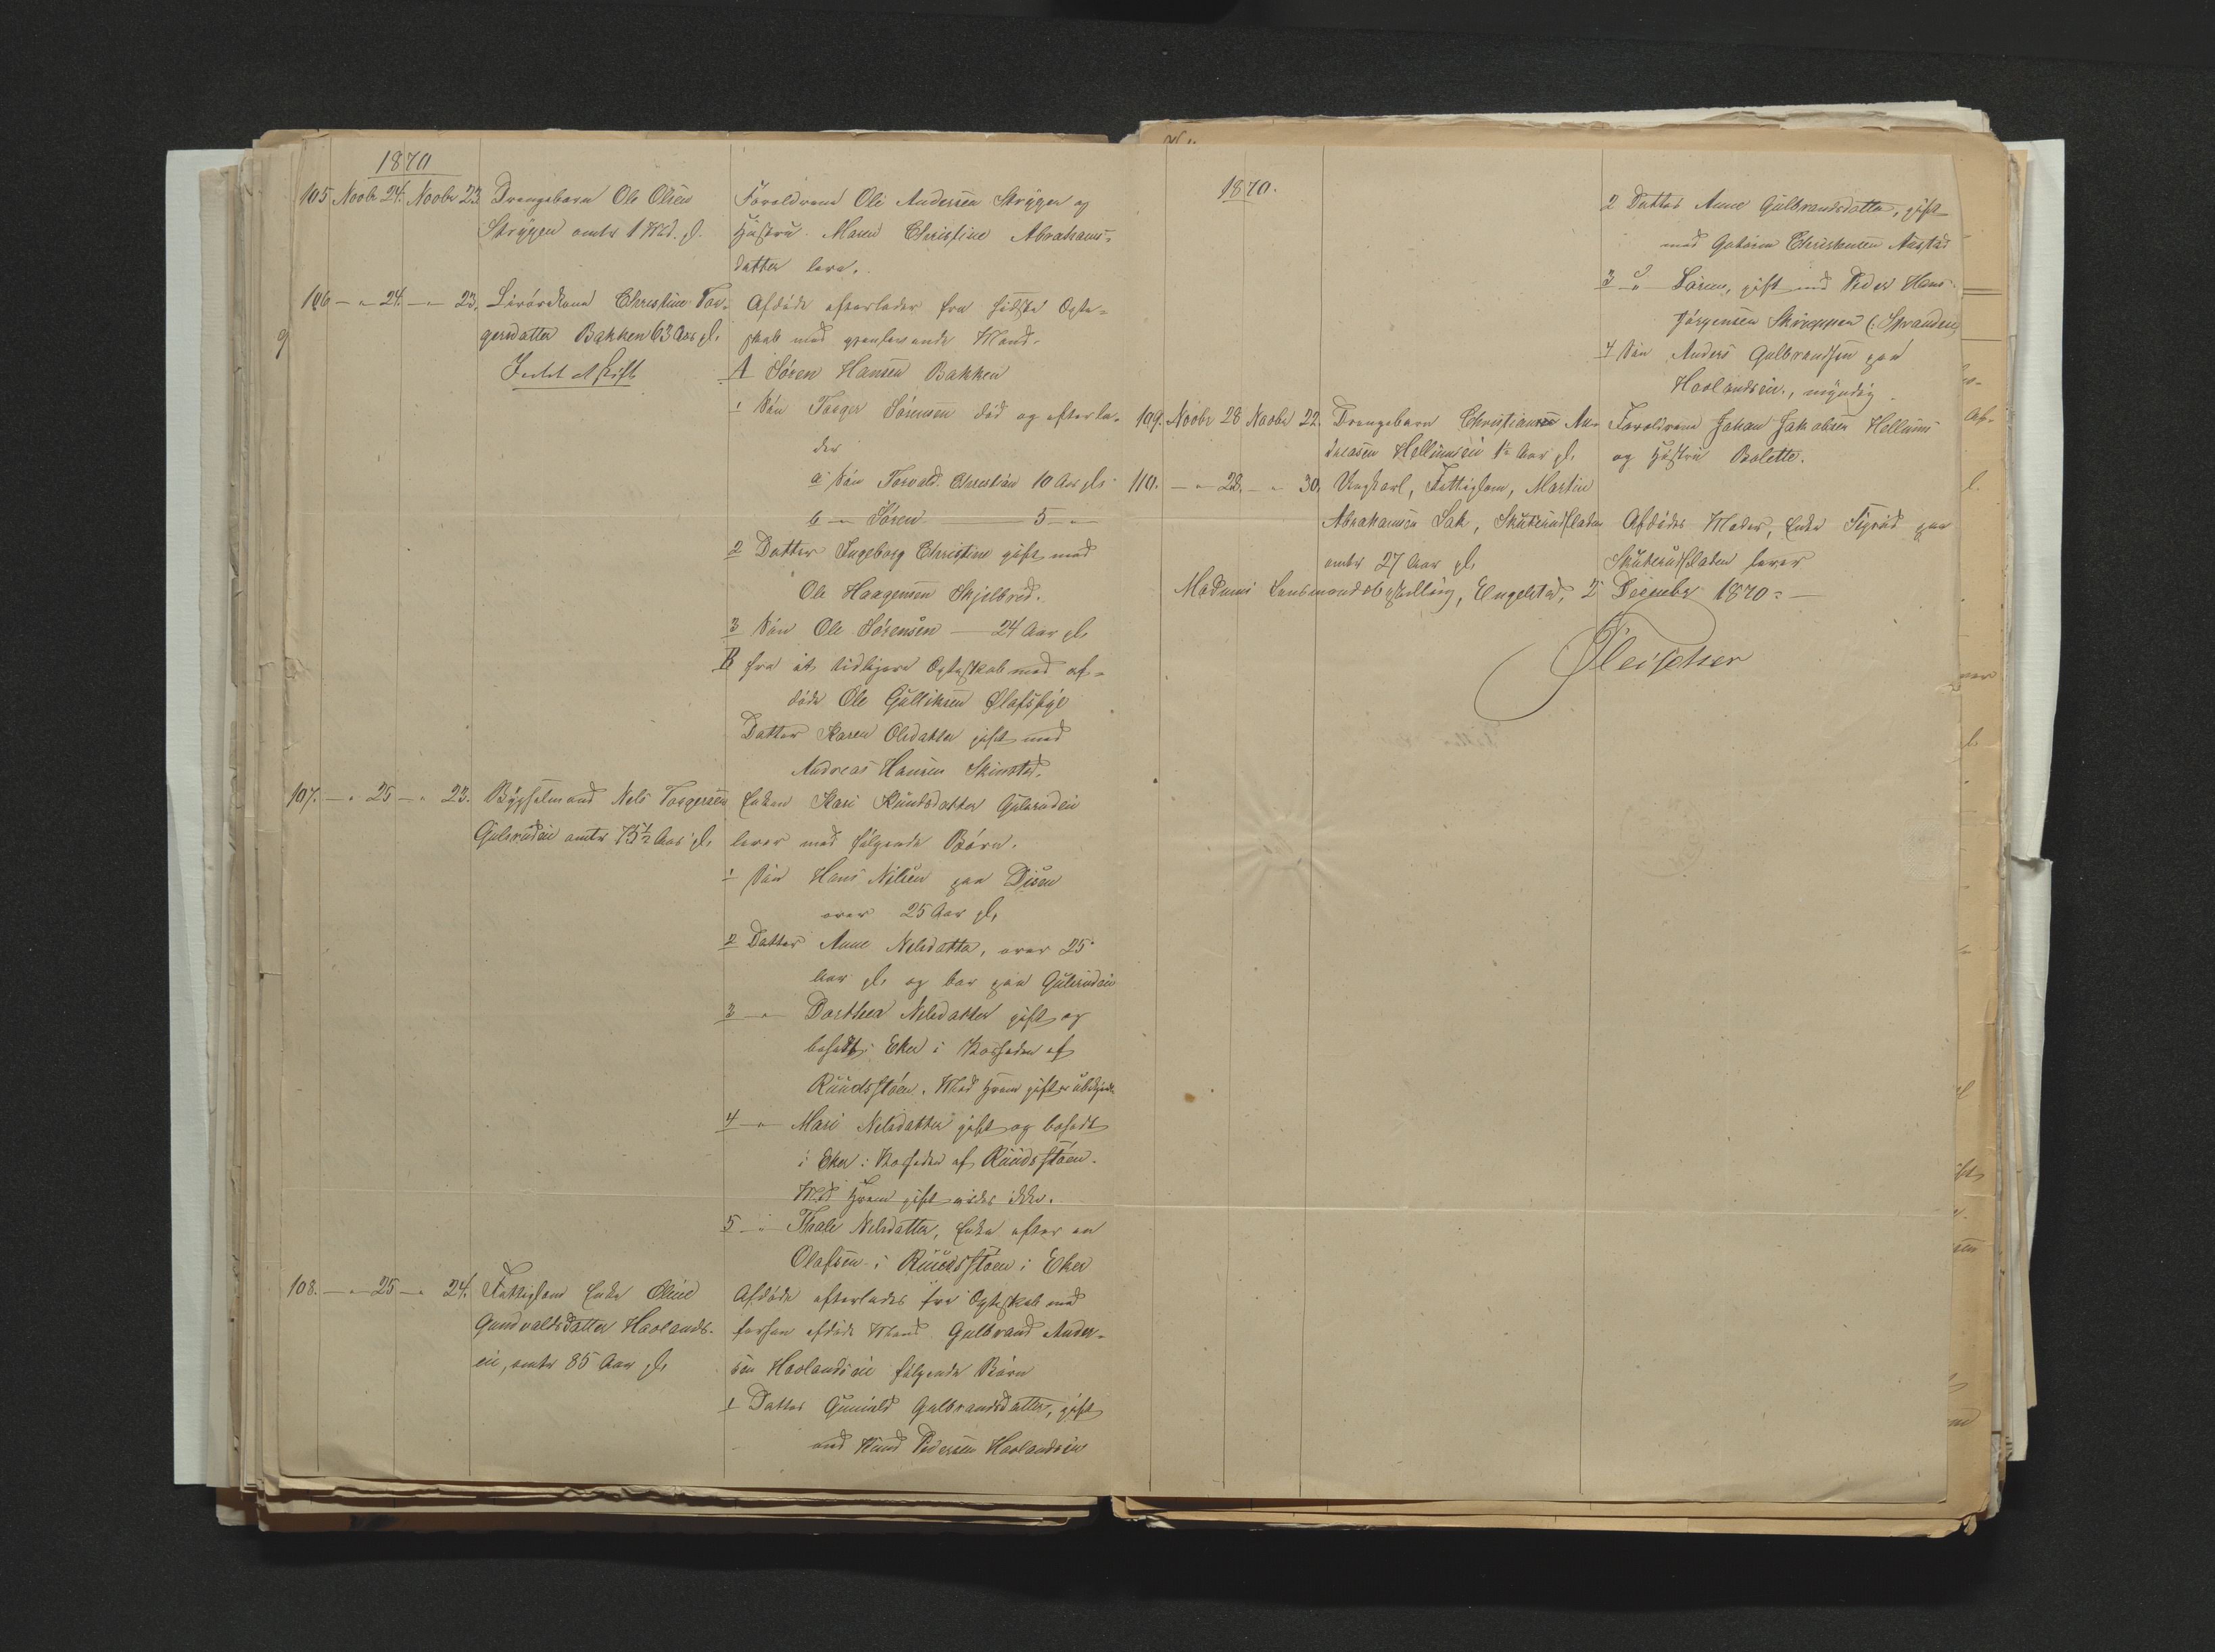 1870
105 Novbr 24. Novbr 23. Drengebarn Ole Olsen
Strygen omtr 1 Md. gl.
Forældrene Ole Andersen Strygen og
Hustru Maren Christine Abrahams-
datter lever.
106 — " 24. — " 23. Christine Tor-
gersdatter Bakken 63 Aar gl.
Afdøde efterlader fra sidste Ægte-
skab med gjenlevende Mand
A Søren Hansen Bakken
1 Søn Torger Sørensen død og efterla-
der
a Søn Torvald Christian 10 Aar gl.
b — Søren — 5 — "
2 Datter Ingeborg Christine gift med
Ole Haagensen Skjelbred.
3 Søn Ole Sørensen — 24 Aar gl.
B fra et tidligere Ægteskab med af-
døde Ole Gulliksen Olafsbye
Datter Karen Olsdatter gift med
Andreas Hansen Skinstad.
107. — " 25 — " 23. Bygselmand Nels Torgersen
Gulsrudeie omtr 73½ Aar gl.
Enken Kari Knudsdatter Gulsrudeie
lever med følgende Børn.
1 Søn Hans Nilsen paa Disen
over 25 Aar gl.
2 Datter Anne Nelsdatter, over 25
Aar gl. og bor paa Gulsrudeie
3 — " Dorthea Nelsdatter gift og
bosadt i Eker i Nærheden af
Ruudsstøen. Med Hvem gift er ubekjendt
4 — " Mari Nelsdatter gift og bosadt
i Eker i Nærheden af Ruudsstøen.
Med Hvem gift vides ikke.
5 — " Thale Nelsdatter, Enke efter en
Olafsen i Ruudsstøen i Eker
108. — " 25 — " 24. Fattiglem Enke Oline
Gundvaldsdatter Haolands-
eie, omtr 85 Aar gl.
Afdøde efterlader fra Ægteskab med
forhen afdøde Mand Gulbrand Ander-
sen Haolandseie følgende Børn
1 Datter Gunild Gulbrandsdatter, gift
med Knud Pedersen Haolandseie
1870.
2 Datter Anne Gulbrandsdatter, gift
med Christensen Aastad
3 d Sørine, gift med Peder Hans
Jørgensen Skoreppen (: Stranden
4 Søn Anders Gulbrandsen paa
Haolandseie, myndig.
109. Novbr 28 Novbr 22. Drengebarn Christian An-
dreasen Hellumseie ½ Aar gl.
Forældrene Johan Jakobsen Hellums
og Hustru Bolette.
110. — " 28. — " 30. Ungkarl, Fattiglem, Martin
Abrahamsen Sak, Skuterudfladen
omtr 27 Aar gl.
Afdødes Moder, Enke Sigrid paa
Skuterudfladen lever
Modums Lensmandsbestilling, Engelstad, 2 December 1870. —
Fleischer